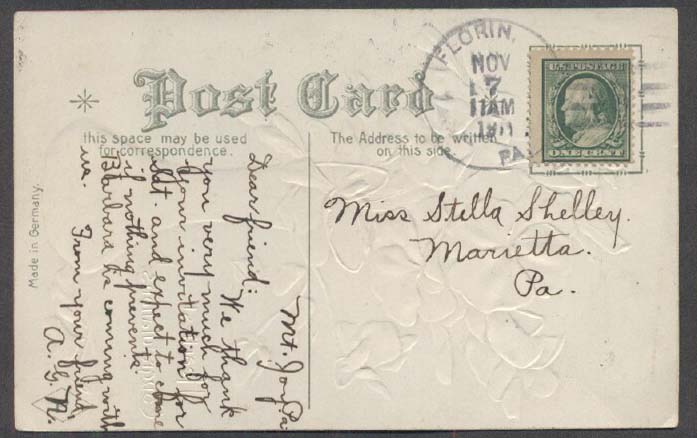 Post Card
This space may be used
for correspondence.
The Address to be written
on this side.
Made in Germany.
FLORIN,
NOV
7
11 AM
1911
PA.
U.S. POSTAGE
ONE CENT
Miss Stella Shelley.
Marietta.
Pa.
Mt. Joy Pa
Dear friend;
We thank
you very much for
your invitation for
and expect to come
if nothing prevents.
Barbara is coming with
us.
From your friend
A. G. N.